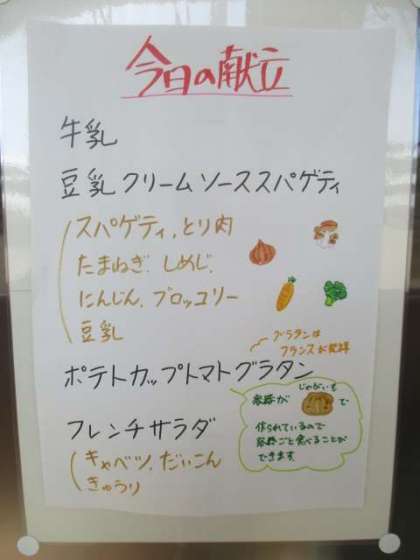 今日の献立
牛乳
豆乳クリームソーススパゲティ
スパゲティ,とり肉
たまねぎ. しめじ.
にんじん、ブロッコリー
豆乳
グラタンは
フランスが発祥
ポテトカップトマトグラタン
じゃがいも
容器が で
作られているので
容器ごと食べることが
できます
フレンチサラダ
キャベツ、だいこん
きゅうり